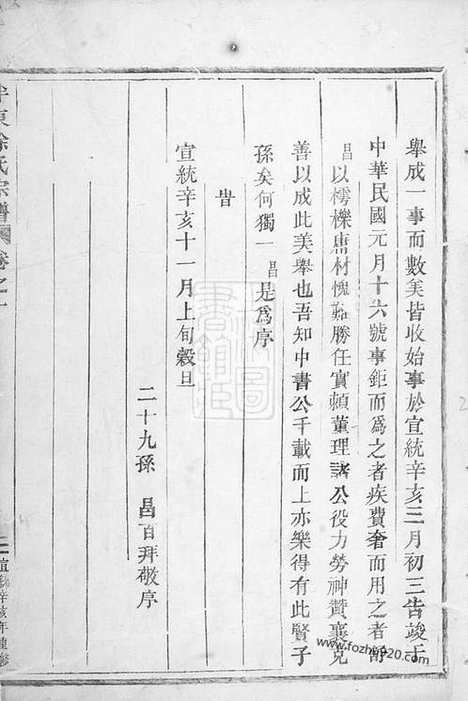 舉成一事而數美皆收始事於宣統辛亥三月初三告竣于
中華民國元月十六號事鉅而爲之者疾費奢而用之者舒
昌以樗櫟庸材愧難勝任實頼董理諸公役力勞神贊襄克
善以成此美舉也吾知中書公千載而上亦樂得有此賢子
孫矣何獨一昌是爲序
旹
宣統辛亥十一月上旬穀旦
二十九孫 昌百拜敬序
東徐氏宗譜 卷之一
宣統辛亥年重修
www.fozhu920.com